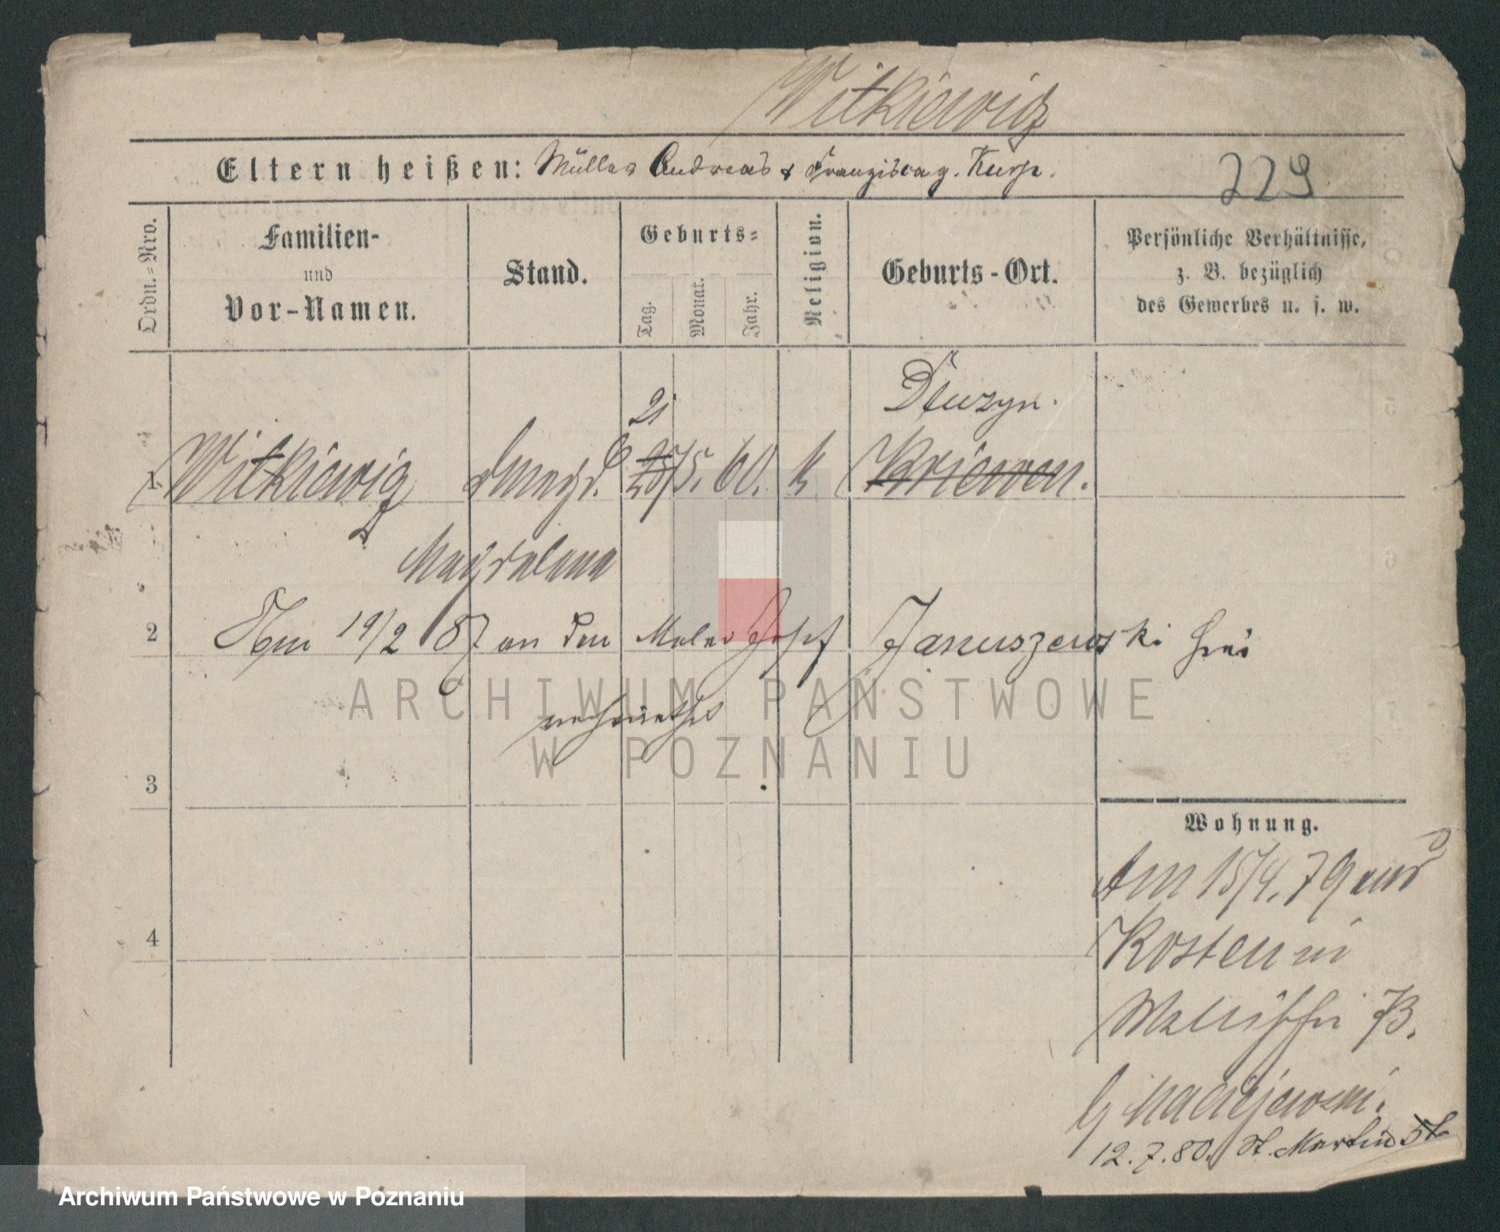 Witkiewicz
Eltern heißen: Müller Andreas & Franziska g.
229
Ordn.-Nro.
Familien- und Vor-Namen.
Stand.
Geburts-
Tag.
Monat.
Jahr.
Religion.
Geburts-Ort.
Persönliche Verhältnisse,
z. B. bezüglich
des Gewerbes u. s. w.
21
1 Witkiewicz 5. 60. k Kriewen.
Magdalena
2 19/2 87 an den Maler Josef Januszewski hier
verheirathet
3
4
Wohnung.
Am 15/4. 79 aus
Kosten in
Wallischei 73.
b/ Maciejewski.
12.7.80. St. Martin
ARCHIWUM PAŃSTWOWE
W POZNANIU
Archiwum Państwowe w Poznaniu